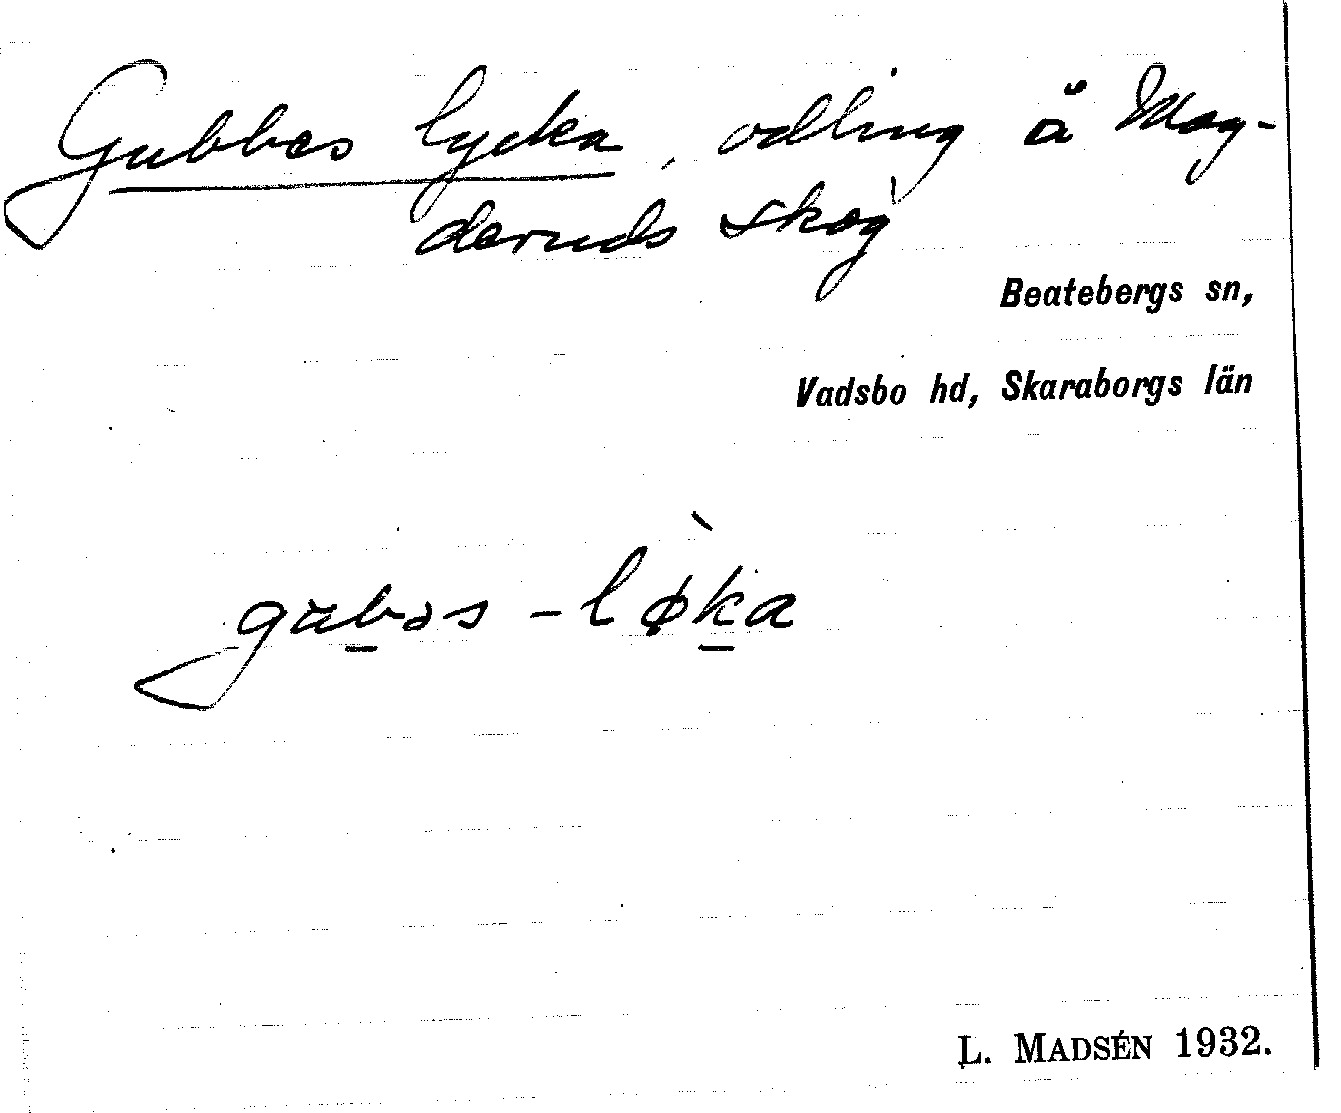 Gubbes lycka, odling å Mag-
deruds skog
Beatebergs sn,
Vadsbo hd, Skaraborgs län
gubəs-lø̀ka
L. MADSÉN 1932.